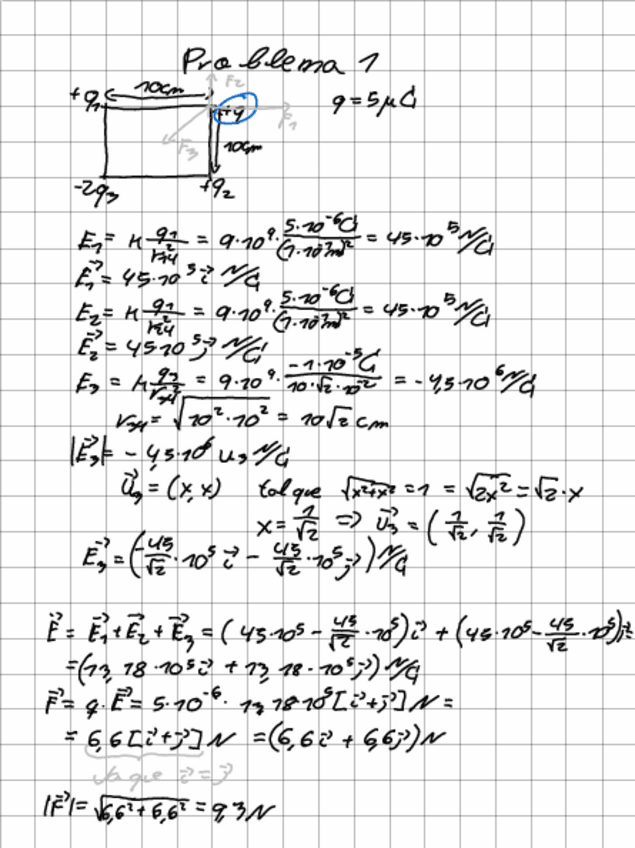 Problema 1
10cm
F₂
+q₁
+q
F₁
q = 5μC
F₃
10cm
-2q₃
+q₂
E₁ = K q₁/r₁₄² = 9·10⁹ · 5·10⁻⁶C/(1·10⁻¹m)² = 45·10⁵ N/C
E⃗₁ = 45·10⁵ i⃗ N/C
E₂ = K q₁/r₂₄² = 9·10⁹ · 5·10⁻⁶C/(1·10⁻¹m)² = 45·10⁵ N/C
E⃗₂ = 45·10⁵ j⃗ N/C
E₃ = K q₃/r₃₄² = 9·10⁹ · -1·10⁻⁵C/10·√2·10⁻² = -4,5·10⁶ N/C
r₃₄ = √10²·10² = 10√2 cm
|E⃗₃| = -4,5·10⁶ u₃ N/C
U⃗₃ = (x, x) tal que √x²+x² = 1 = √2x² = √2·x
x = 1/√2 => U⃗₃ = (1/√2, 1/√2)
E⃗₃ = (-45/√2 ·10⁵ i⃗ - 45/√2 ·10⁵ j⃗) N/C
E⃗ = E⃗₁ + E⃗₂ + E⃗₃ = (45·10⁵ - 45/√2 ·10⁵) i⃗ + (45·10⁵ - 45/√2 ·10⁵) j⃗
= (13,18·10⁵ i⃗ + 13,18·10⁵ j⃗) N/C
F⃗ = q·E⃗ = 5·10⁻⁶ · 13,18·10⁵ [i⃗+j⃗] N =
= 6,6 [i⃗+j⃗] N = (6,6 i⃗ + 6,6 j⃗) N
ya que i⃗ = j⃗
|F⃗| = √6,6² + 6,6² = 9,3 N